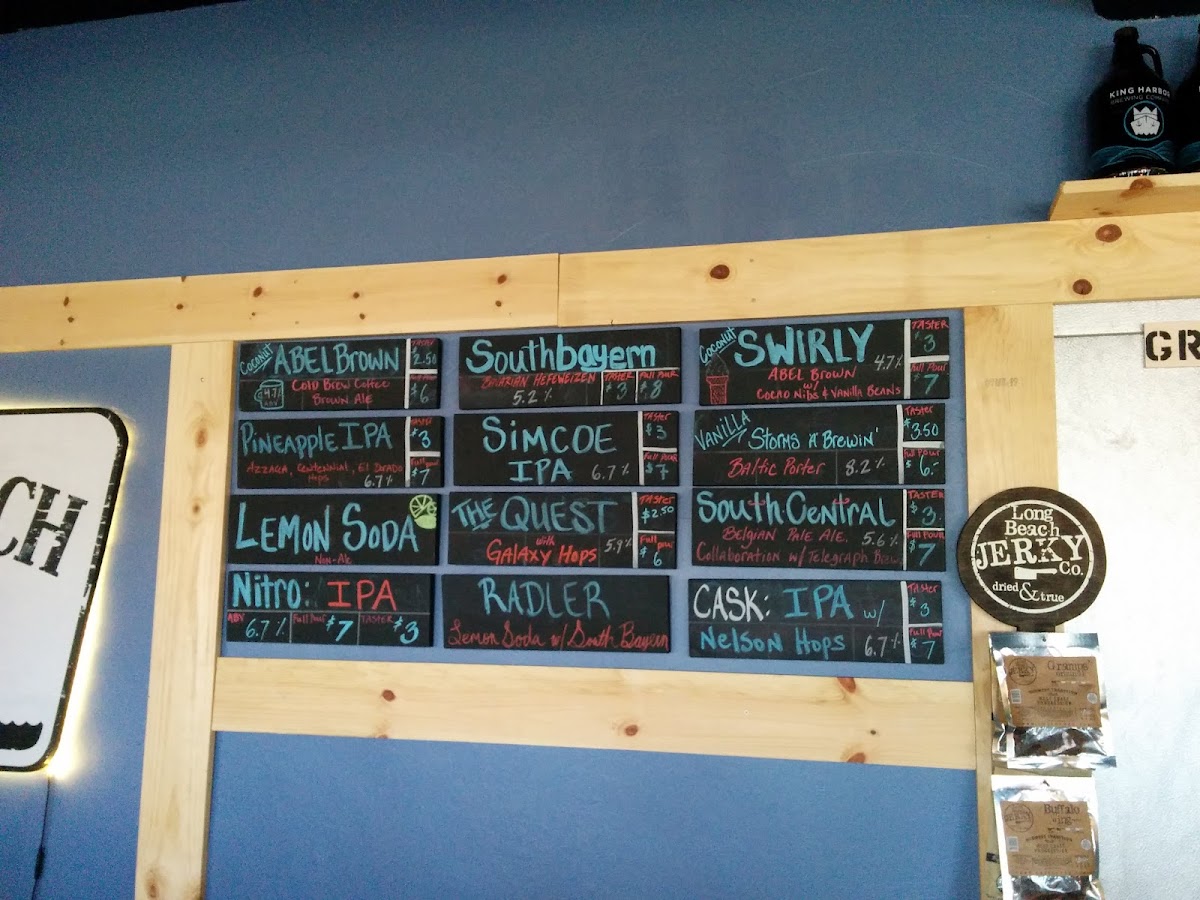 KING HARBOR
BREWING COMPANY
GR
CH
COCONUT
ABEL BROWN
4.7%
ABV
COLD BREW COFFEE
BROWN ALE
TASTER
$2.50
FULL POUR
$6
Southbayern
BAVARIAN HEFEWEIZEN
5.2%
TASTER
$3
FULL POUR
$8
COCONUT
SWIRLY
4.7%
ABEL BROWN
w/
COCAO NIBS & VANILLA BEANS
TASTER
$3
FULL POUR
$7
PINEAPPLE IPA
AZZACCA, CENTENNIAL, EL DORADO
HOPS
6.7%
TASTER
$3
FULL POUR
$7
SIMCOE
IPA 6.7%
TASTER
$3
FULL POUR
$7
VANILLA
"STORMS A'BREWIN'
BALTIC PORTER 8.2%
TASTER
$3.50
FULL POUR
$6-
LEMON SODA
NON-ALC
THE QUEST
with
GALAXY HOPS 5.9%
TASTER
$2.50
FULL
POUR
$6
SOUTH CENTRAL
BELGIAN PALE ALE. 5.6%
COLLABORATION w/ TELEGRAPH BREW
TASTER
$3.
FULL POUR
$7
NITRO: IPA
ABV
6.7%
FULL POUR
$7
TASTER
$3
RADLER
Lemon Soda w/ South Bayern
CASK: IPA w/
NELSON HOPS 6.7%
TASTER
$3
FULL POUR
$7
Long
Beach
JERKY
Co.
dried & true
Gramps'
Buffalo